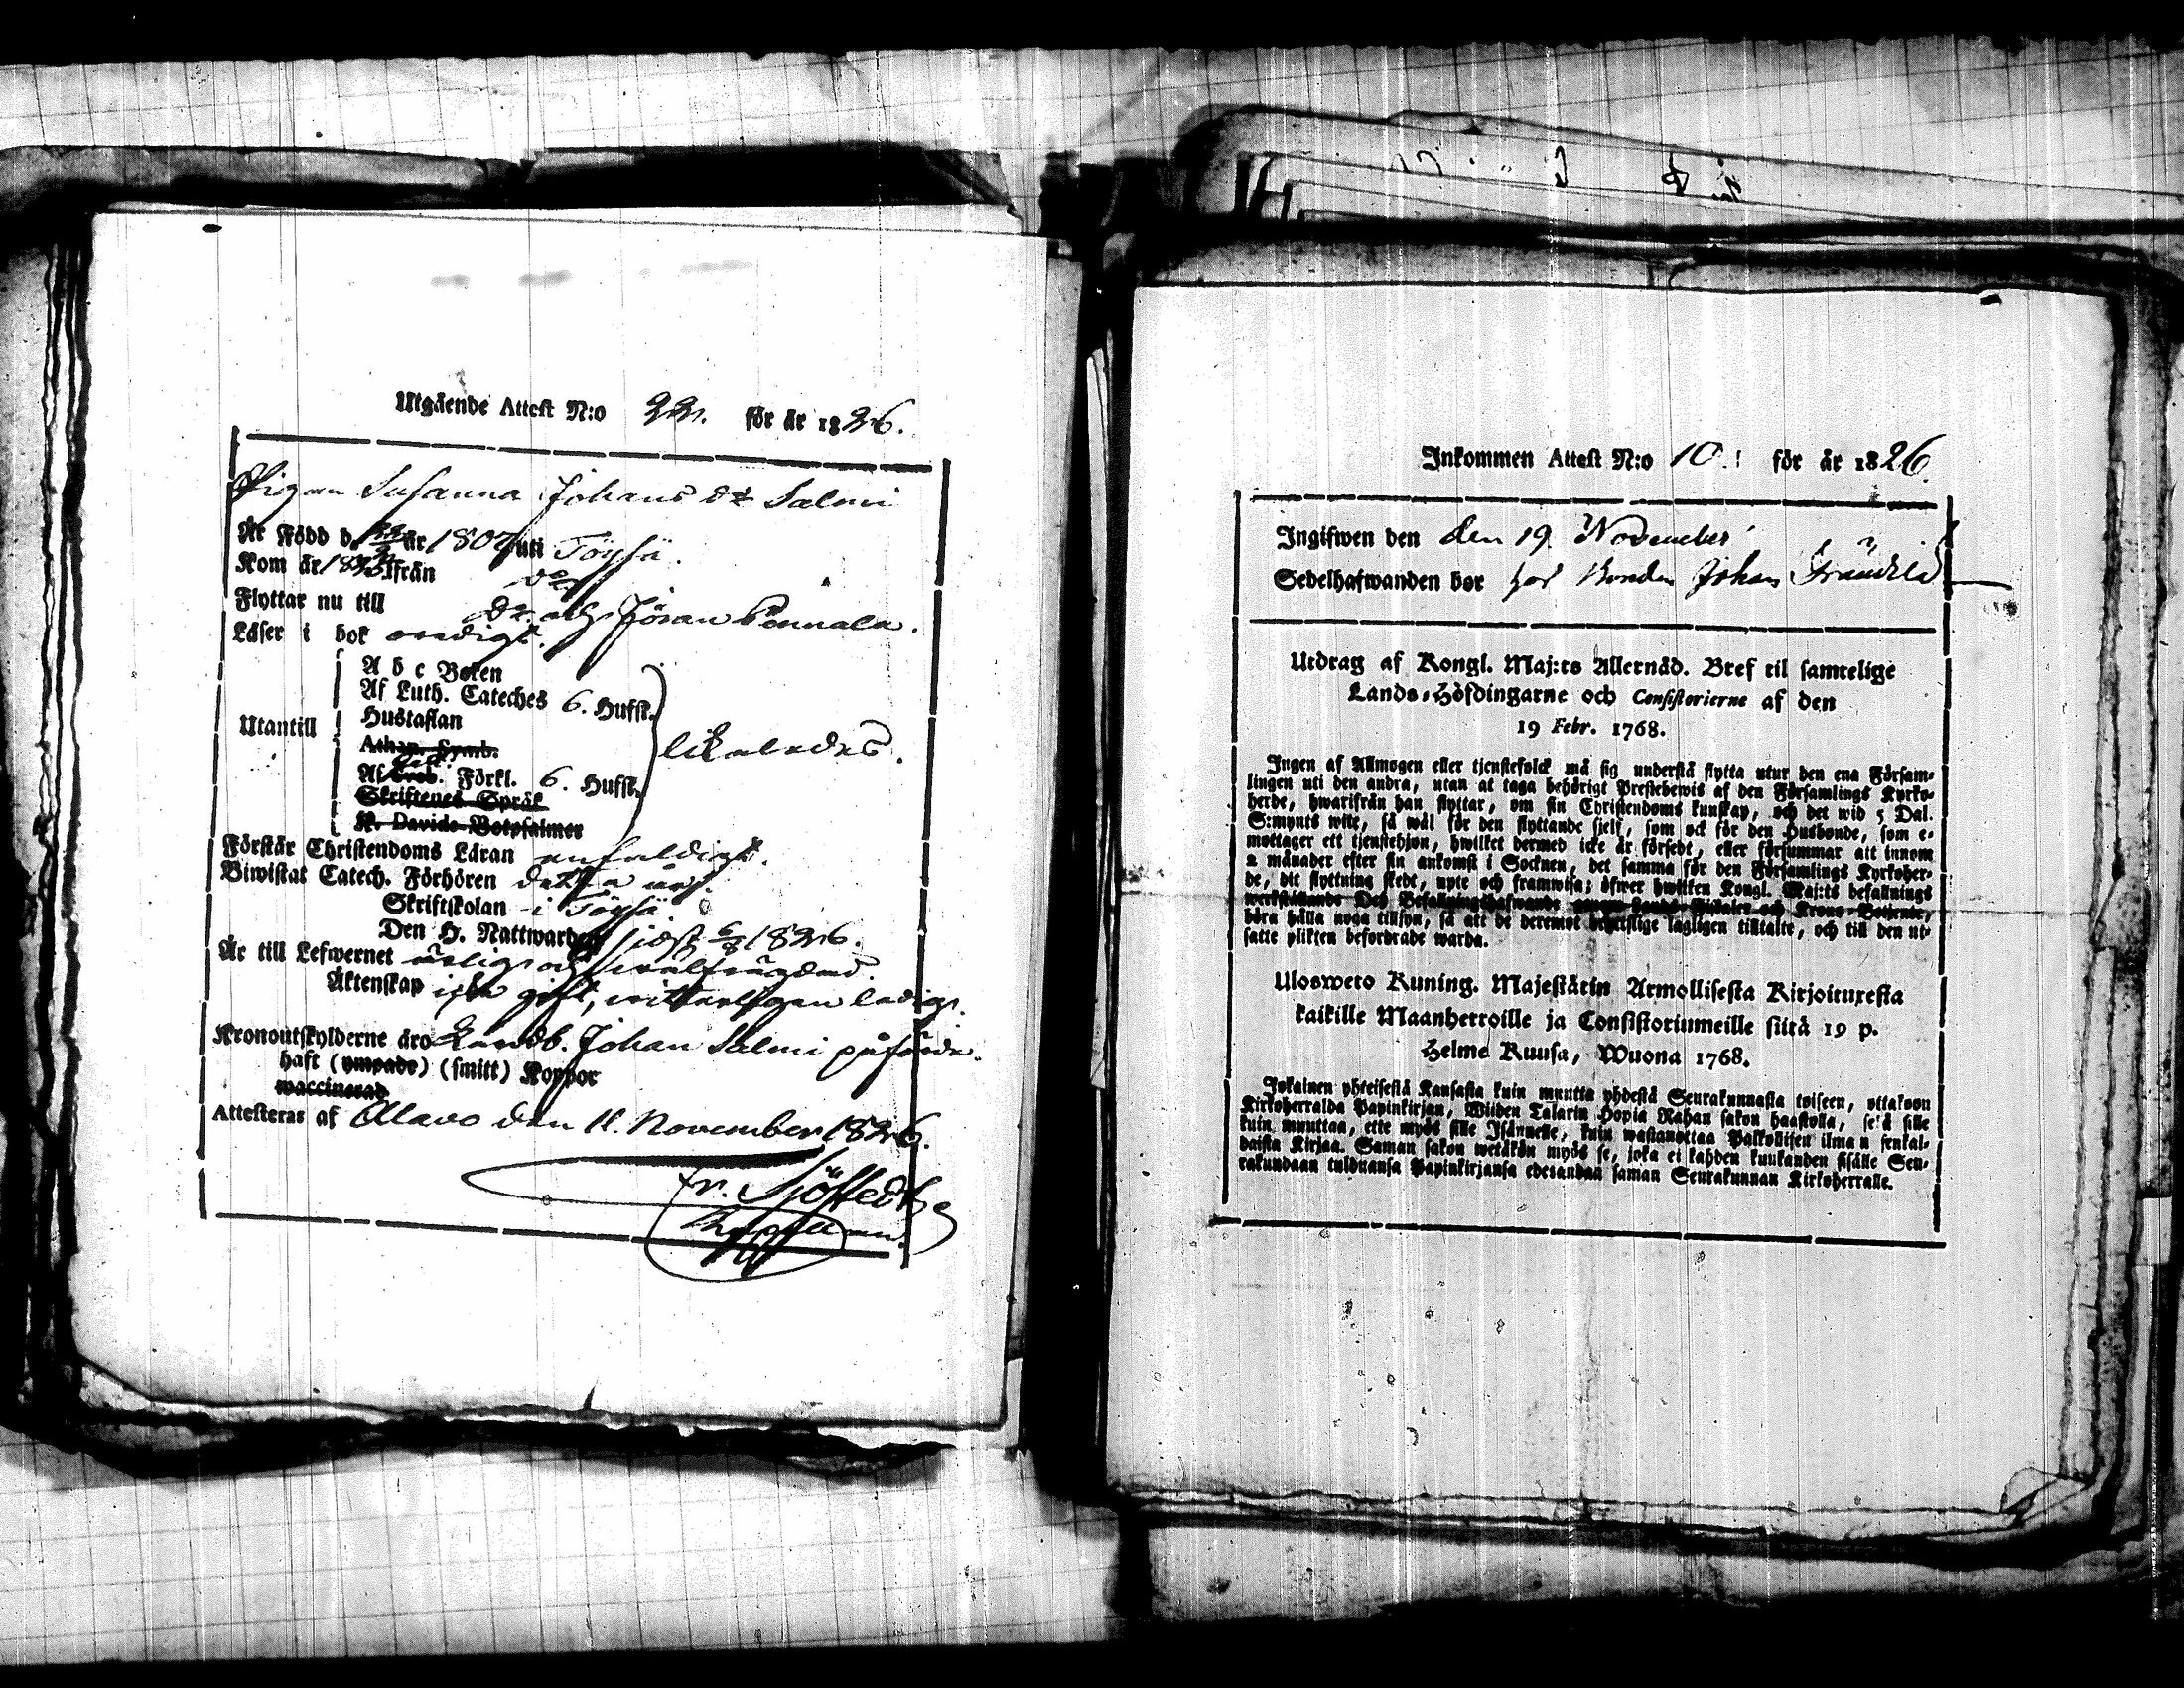 Utgående Attest N:o 22. för år 1826.
Pigan Susanna Johans dr Salmi
Är Född d. år 1807 uti Töysä.
Kom år 1823 ifrån do
Flyttar nu till Jöran
Läser i bok
A b c Boken
Af Luth. Cateches 6. Hufst.
Hustaflan
Utantill likaledes.
Athan. Symb.
Af Förkl. 6. Hufst.
Skriftenes Språk
K. Davids Botpsalmer
Förstår Christendoms Läran enfaldigt.
Biwistat Catech. Förhören detta år.
Skriftskolan i Töysä
Den H. Nattwarden sidst 6/8 1826.
Är till Lefwernet ärlig och wälfrägdad.
Äktenskap icke gift, witterligen ledig.
Kronoutskylderne äro Landb. Johan Salmi påförde.
haft (ympade) (smitt) Koppor
waccinerad
Attesteras af Alavo den 11. November 1826.
Fr. Sjöstedt
Capellan.
Inkommen Attest N:o 10.: för år 1826.
Ingifwen den den 19 November
Sedelhafwanden bor hos Bonden Johan
Utdrag af Kongl. Maj:ts Allernåd. Bref til samtelige
Lands-Höfdingarne och Consistorierne af den
19 Febr. 1768.
Ingen af Allmogen eller tjenstefolck må sig understå flytta utur den ena Försam-
lingen uti den andra, utan at taga behörigt Prestebewis af den Församlings Kyrko-
herde, hwarifrån han flyttar, om sin Christendoms kunskap, och det wid 5 Dal.
S:mynts wite, så wäl för den flyttande sjelf, som ock för den Husbonde, som e-
mottager ett tjenstehjon, hwilket dermed icke är försedt, eller försummar att innom
2 månader efter sin ankomst i Socknen, det samma för den Församlings Kyrkoher-
de, dit flyttning skedt, upte och framwisa; öfwer hwilken Kongl. Maj:ts befallnings
werkställande Des Befallningshafwande Krono-Betjente,
böra hålla noga tillsyn, så att de deremot lagligen tilltalte, och till den ut-
satte plikten befordrade warda.
Ulosweto Kuning. Majestätin Armollisesta Kirjoituxesta
kaikille Maanherroille ja Consistoriumeille siitä 19 p.
Helme Kuusa, Wuona 1768.
Jokainen yhteisestä Kansasta kuin muutta yhdestä Seurakunnasta toiseen, ottakoon
Kirkoherralda Papinkirjan, Wiiden Talarin Hopia Rahan sakon haastolla, sekä sille
kuin muuttaa, ette myös sille Isännelle, kuin wastanottaa Palkollisen ilman senkal-
daista Kirjaa. Saman sakon wetäkön myös se, joka ei kahden kuukanden sisälle Seu-
rakundaan tulduansa Papinkirjansa edesandaa saman Seurakunnan Kirkoherralle.